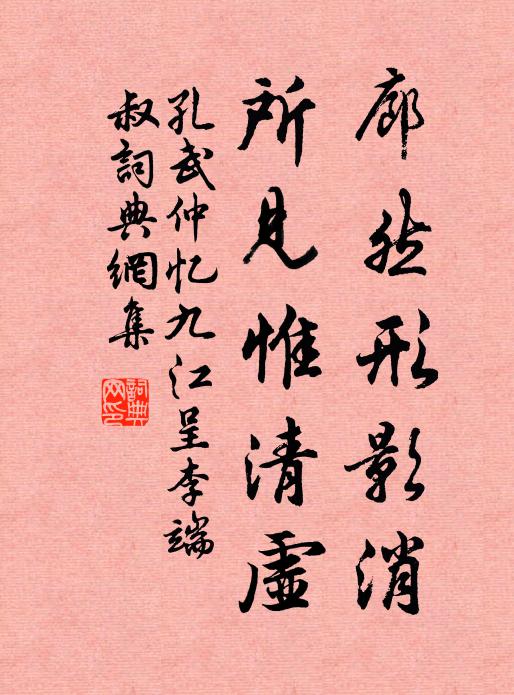 廓然形影消
所見惟清虛
孔武仲忆九江呈李端
叔詞典網集
詞典
网印